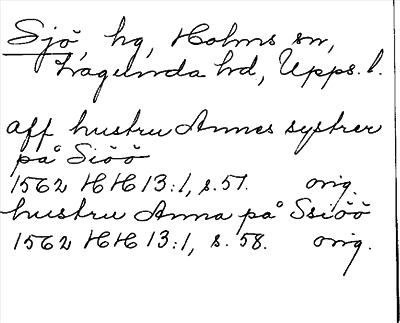 Sjö, hg, Holms sn,
Lagunda hd, Upps. l.
aff hustru Annes systrer
på Siöö
1562 HH 13:1, s. 57. orig.
hustru Anna på Ssiöö
1562 HH 13:1, s. 58. orig.